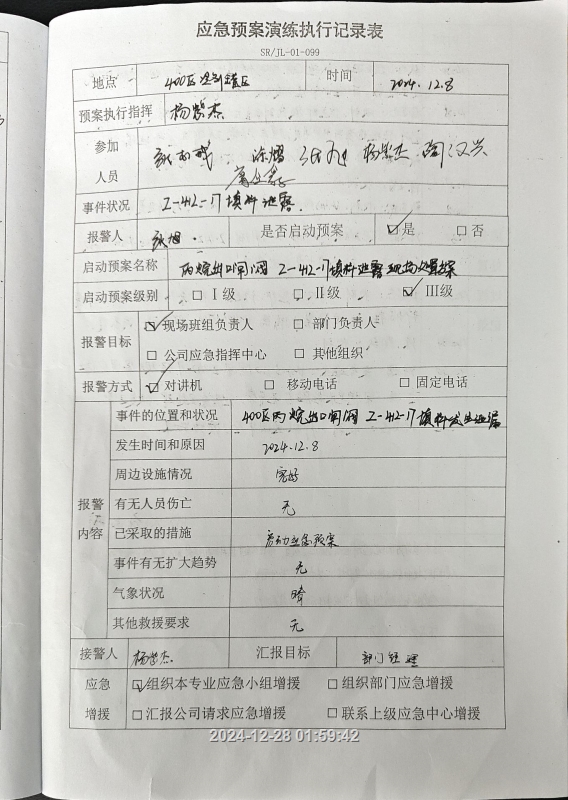 应急预案演练执行记录表
SR/JL-01-099
地点 400区 罐区 时间 2024.12.8
预案执行指挥 杨紫杰
参加
人员 杨紫杰 陶汉兴
事件状况 Z-412-17填料泄露.
报警人 是否启动预案 ☑是 □否
启动预案名称 丙烷出口闸阀 Z-412-17填料泄露现场处置
启动预案级别 □Ⅰ级 □Ⅱ级 ☑Ⅲ级
报警目标 ☑现场班组负责人 □部门负责人
□公司应急指挥中心 □其他组织
报警方式 ☑对讲机 □移动电话 □固定电话
报警内容
事件的位置和状况 400区丙烷出口闸阀 Z-412-17填料发生泄漏
发生时间和原因 2024.12.8
周边设施情况 完好
有无人员伤亡 无
已采取的措施 启动应急预案
事件有无扩大趋势 无
气象状况 晴
其他救援要求 无
接警人 杨紫杰. 汇报目标 部门经理
应急 ☑组织本专业应急小组增援 □组织部门应急增援
增援 □汇报公司请求应急增援 □联系上级应急中心增援
2024-12-28 01:59:42